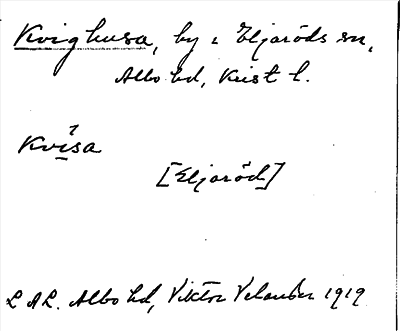 Kvighusa, by i Eljaröds sn,
Albo hd, Krist l.
Kvísa
[Eljaröd]
LAL. Albo hd, Viktor Velander 1919